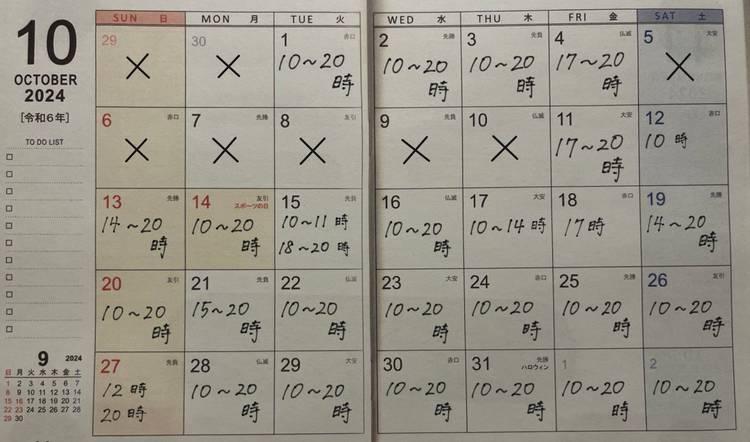 10
OCTOBER
2024
[令和6年]
TO DO LIST
SUN 日 MON 月 TUE 火 WED 水 THU 木 FRI 金 SAT 土
29 30 1 赤口 2 先勝 3 先負 4 仏滅 5 大安
× × 10～20時 10～20時 10～20時 17～20時 ×
6 赤口 7 先勝 8 友引 9 先負 10 仏滅 11 大安 12 赤口
× × × × × 17～20時 10時
13 先勝 14 友引 スポーツの日 15 先負 16 仏滅 17 大安 18 赤口 19 先勝
14～20時 10～20時 10～11時 10～20時 10～14時 17時 14～20時
18～20時
20 友引 21 先負 22 仏滅 23 大安 24 赤口 25 先勝 26 友引
10～20時 15～20時 10～20時 10～20時 10～20時 10～20時 10～20時
27 先負 28 仏滅 29 大安 30 赤口 31 先勝 ハロウィン 1 2
12時 10～20時 10～20時 10～20時 10～20時 10～20時 10～20時
20時
9 2024
日 月 火 水 木 金 土
1 2 3 4 5 6 7
8 9 10 11 12 13 14
15 16 17 18 19 20 21
22 23 24 25 26 27 28
29 30